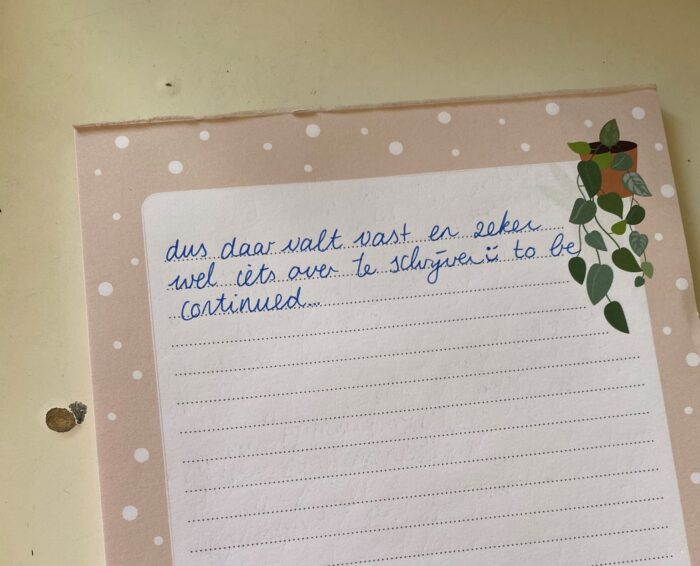 dus daar valt vast en zeker
wel iets over te schrijven to be
continued...